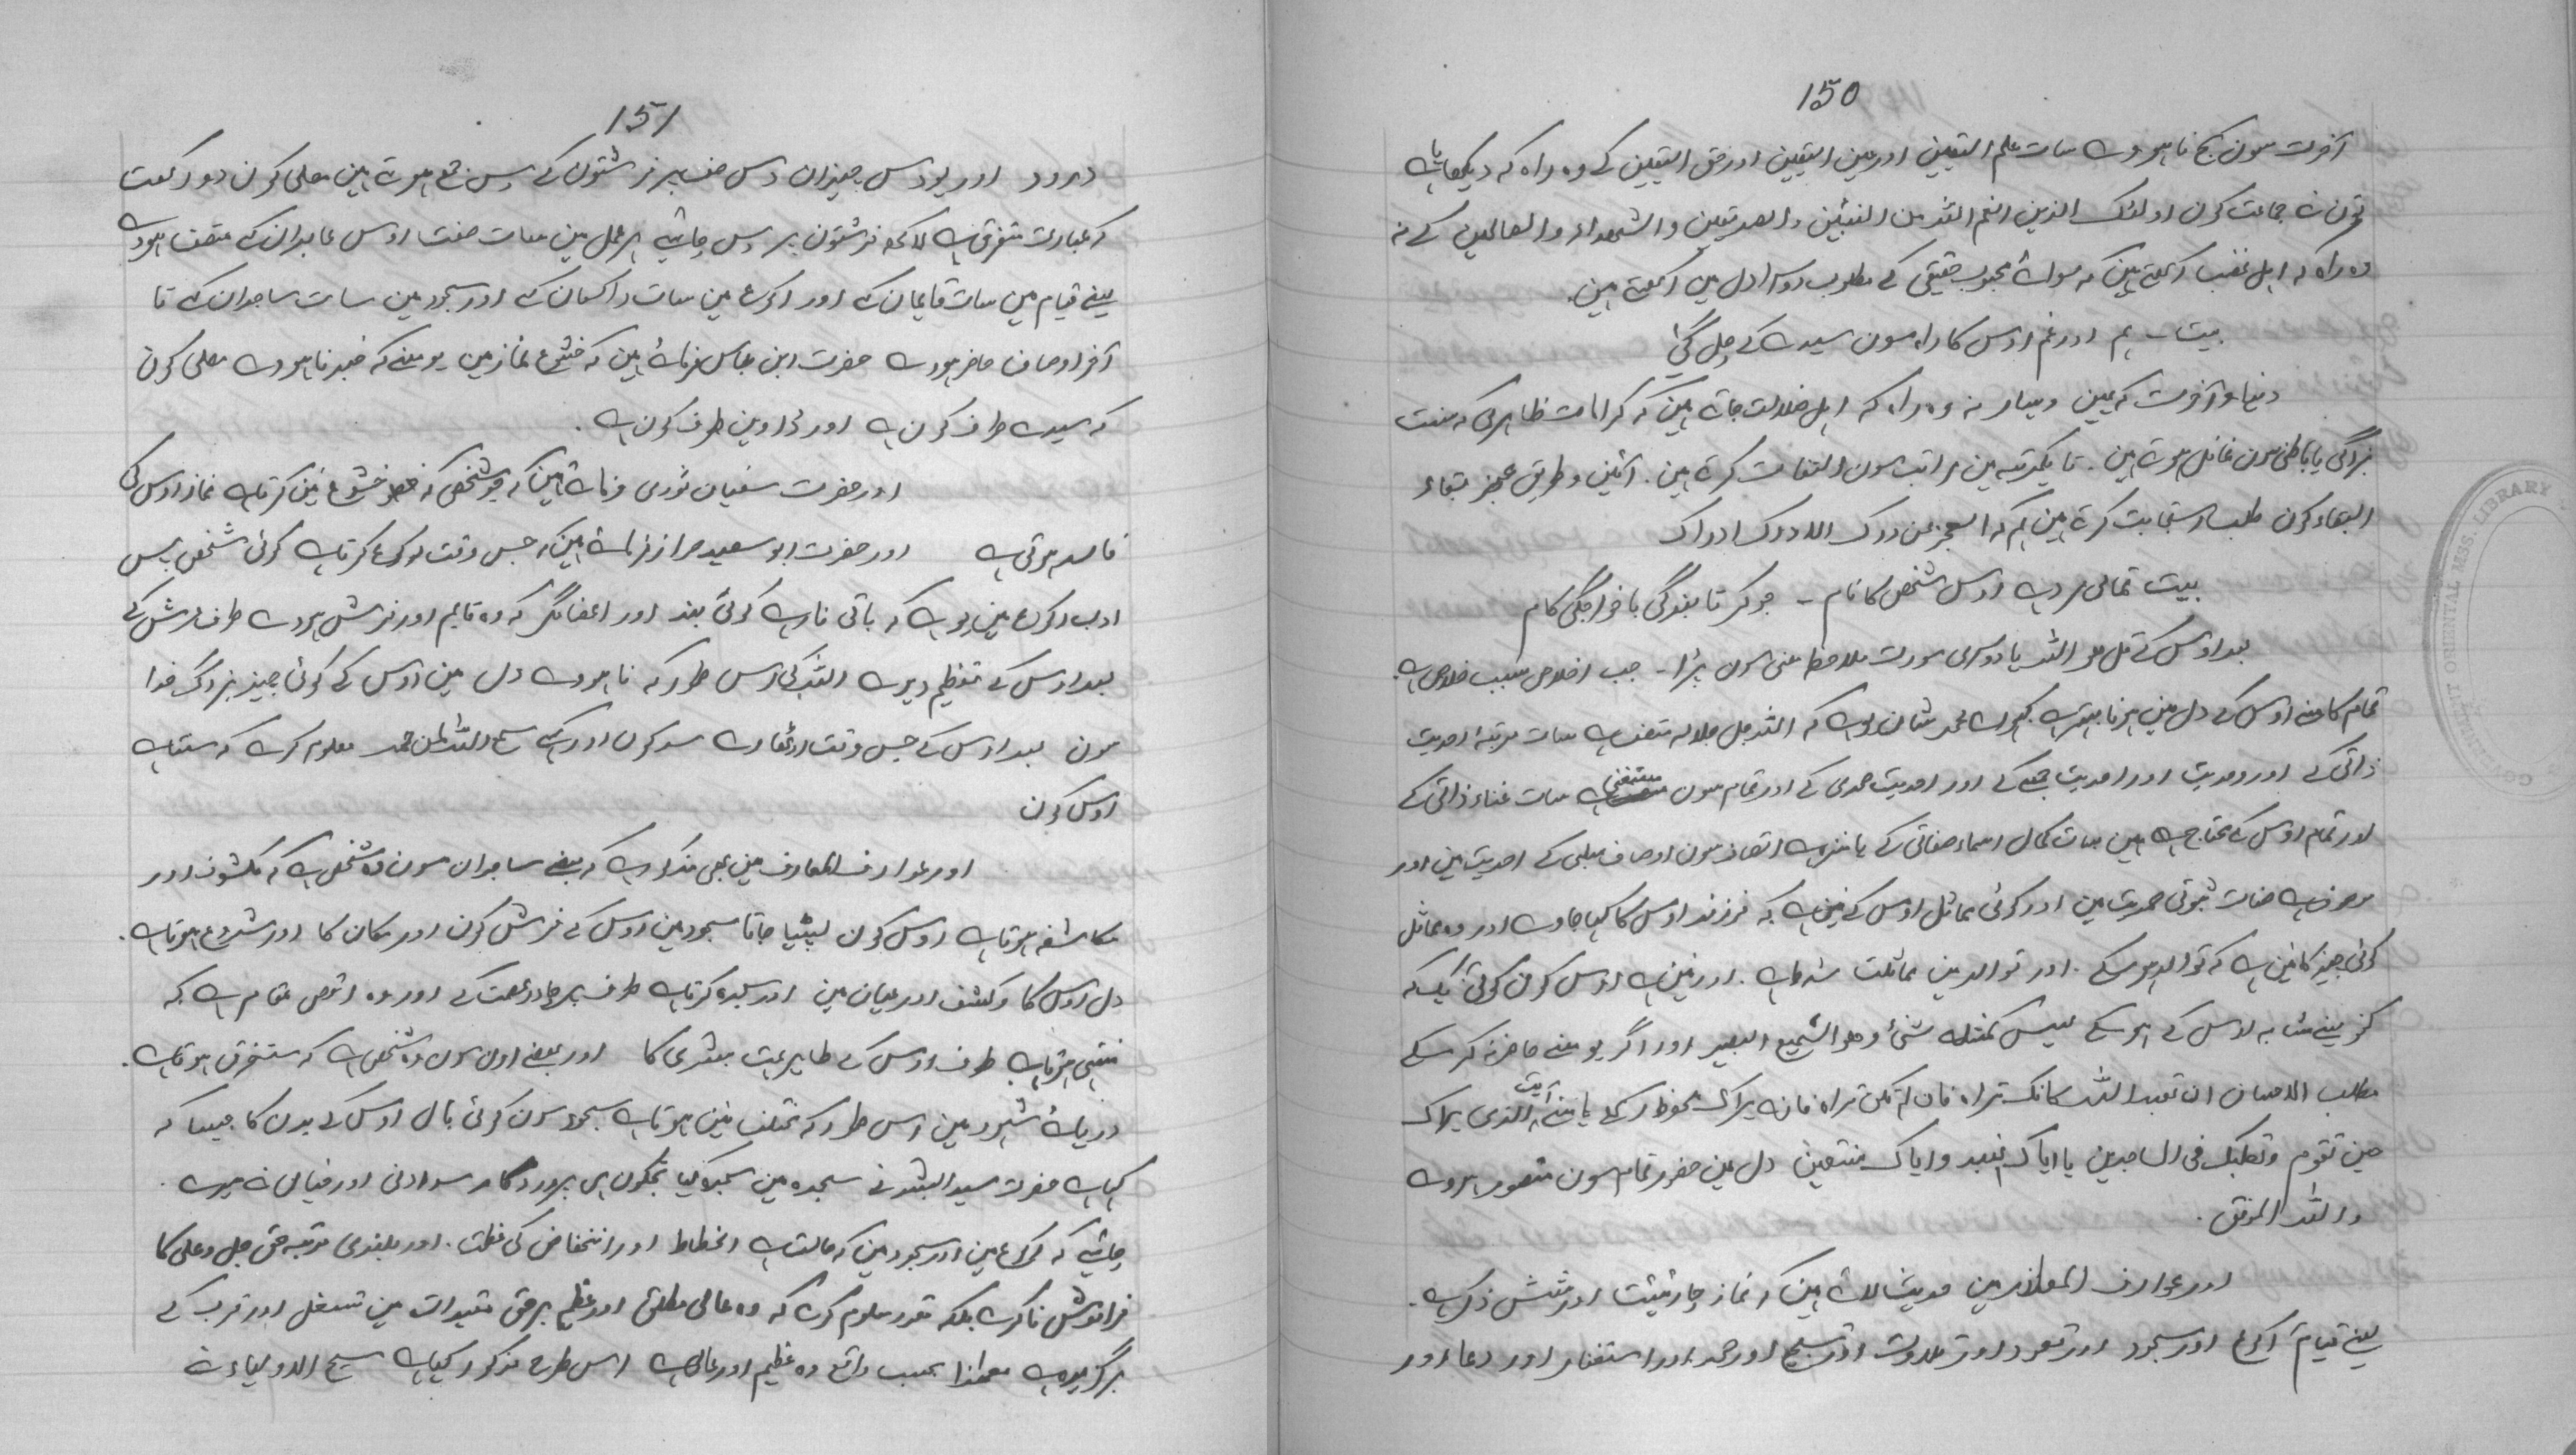 150
آخرت سون بچ نا ہووے سات علم الیقین اور عین الیقین اور حق الیقین کے وہ راہ کہ دیکھایا ہے
تون نے جماعت کون اولئک الذین انعم اللہ من النبیین والصدیقین والشہداء والصالحین کے نہ
وہ راہ کہ اہل غضب رکھتے ہین کہ سوائے محبوب حقیقی کے مطلوب دوسرا دل مین رکھتے ہین.
بیت ۔ ہم اور غم اوس کا راہ سون سیدے کے چل گئے
دنیا و آخرت کہ یمین و یسار نہ وہ راہ کہ اہل ضلالت جاتے ہین کہ کرامات ظاہر کی کہ صفت
بزرگی یا باطنی سون غافل ہوتے ہین. تا یکمرتبہ مین مراتب سون التفات کرتے ہین. آئین و طریق عجز بقاء
البقاء کون طلب استجابت کرتے ہین ہم کہ العجز عن درک الادراک ادراک
بیت تمامی مردے اوس شخص کا نام ۔ جو کرتا بندگی باخواجگی کام
بعد اوس کے قل ھو اللہ یا دوسری سورت ملاحظہ معنی سون پڑھا ۔ جب اخلاص سبب خلاص ہے.
تمام کا معنے اوس کے دل مین ہونا بہتر ہے کہ اللہ جل جلالہ متصف ہے سات مرتبۂ احدیت
ذاتی کے اور وحدیت اور احدیت جمعی کے اور احدیت صمدی کے اور تمام سون مستغنی ہے سات غناء ذاتی کے
اور تمام اوس کے محتاج ہے ہین سات کمال اسماء صفاتی کے یا منزہ ہے اتصاف سون اوصاف سلبی کے احدیت مین اور
موصوف ہے صفات ثبوتی صمدیت مین اور کوئی مماثل اوس کے نین ہے کہ فرزند اوس کا کہا جاوے اور وہ مماثل
کوئی چیز کا نین ہے کہ توالد ہو سکے. اور توالد مین مماثلت شرط ہے. اور نین ہے اوس کون کوئی ایک کہ
کفو یعنے مشابہ اوس کے ہو سکے لیس کمثلہ شیٔ وھو السمیع البصیر اور اگر یو معنے حاضر نہ کر سکے
مطلب الاحسان ان تعبد اللہ کانک تراہ فان لم تکن تراہ فانہ یراک محفوظ رکھے یا معنے آیت الذی یراک
حین تقوم وتقلبک فی الساجدین یا ایاک نعبد وایاک نستعین دل مین حضور تمام سون متصور ہووے
واللہ الموفق.
اور عوارف المعارف مین حدیث لائے ہین کہ نماز چار ہیئت اور شش ذکر ہے.
یعنے قیام رکوع اور سجود اور قعود اور تلاوت اور تسبیح اور حمد اور استغفار اور دعا اور
151
درود اور یو دس چیزان دس صف پر فرشتون کے بس جمع ہوتے ہین مصلی کون دو رکعت
کہ عبارت متفرق ہے لاکھ فرشتون پر اوس چاہئے ہر عمل مین سات صفت اوس عابدان کے متصف ہووے
یعنے قیام مین سات قایمان کے اور رکوع مین سات راکعان کے اور سجود مین سات ساجدان کے تا
آخر اوصاف حاضر ہووے حضرت ابن عباس فرمائے ہین کہ خشوع نماز مین یو معنے کہ خبر نا ہووے مصلی کون
کہ سیدے طرف کون ہے اور ڈاوین طرف کون ہے.
اور حضرت سفیان ثوری فرمائے ہین کہ جو شخص کہ خشوع نین کرتا ہے نماز اوس کی
فاسد ہوتی ہے اور حضرت ابو سعید خراز فرمائے ہین کہ جس وقت رکوع کرتا ہے کوئی شخص پس
ادب رکوع مین یو ہے کہ باقی نا رہے کوئی بند اور اعضا مگر کہ وہ قایم اور فرش ہووے طرف عرش کے
بعد اوس کے تعظیم دیوے اللہ کی اس طور کہ نا ہووے دل مین اوس کے کوئی چیز بزرگ خدا
سون بعد اوس کے جس وقت اوٹھاوے سر کون اور کہے سمع اللہ لمن حمد معلوم کرے کہ سنتا ہے
اوس کون
اور عوارف المعارف مین بھی مذکور ہے کہ بعضے ساجدان سون وہ شخص ہے کہ مکشوف اور
مکاشفہ ہوتا ہے اوس کون لپیٹیا جاتا سجود مین اوس کے فرش کون اور مکان کا اور مشروع ہوتا ہے.
دل اوس کا و کشف اور عیان مین اور سجدہ کرتا ہے طرف پر چادر عصمت کے اور وہ اقصی مقام ہے کہ
منتہی ہوتا ہے طرف اوس کے طایر ہمت بشری کا اور بعضے اون سون وہ شخص ہے کہ مستغرق ہوتا ہے.
دریائے شہود مین اس طور کہ تخلف نین ہوتا ہے سجود سون کوئی بال اوس کے بدن کا جیسا کہ
کہا ہے حضرت سید البشر نے سجدہ مین سجدہ کیا تجکون اے پروردگار سوادی اور خیالی نے میرے.
چاہئے کہ رکوع مین اور سجود مین کہ حالت ہے انحطاط اور انخفاض کی عظمت. اور بلندی مرتبہ حق جل وعلی کا
فراموش نا کرے بلکہ تصور معلوم کرے کہ وہ عالی مطلق اور عظیم برحق تقیدات مین تسفل اور قرب کے
برگزیدہ ہے معہذا بحسب واقع وہ عظیم اور عالی ہے اس طرح مذکور کیا ہے سبع الاولیاء نے